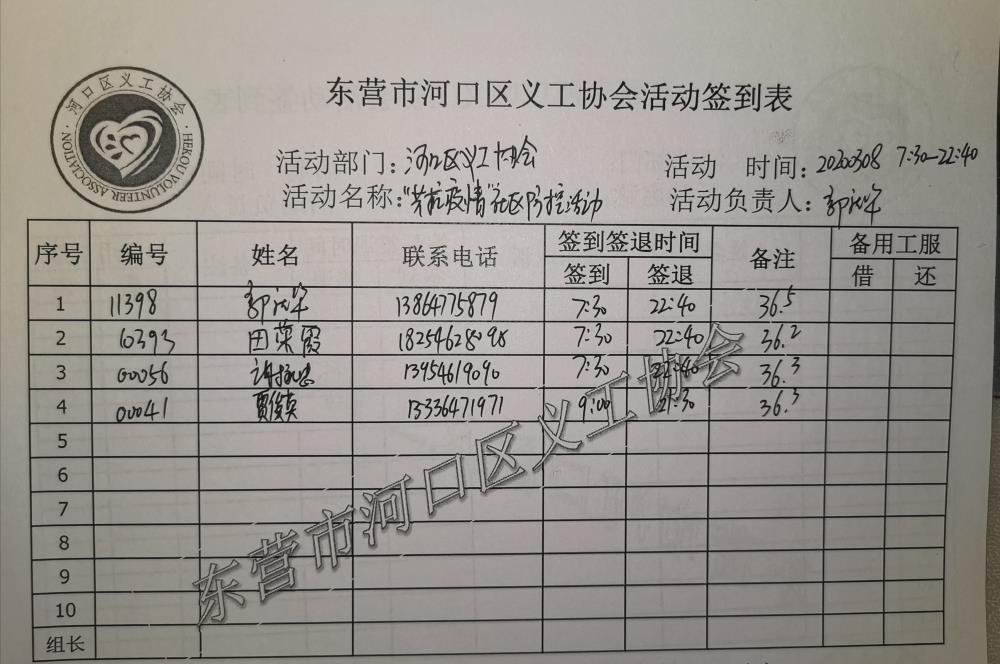 东营市河口区义工协会活动签到表
河口区义工协会
HEKOU VOLUNTEER ASSOCIATION
活动部门：河口区义工协会 活动 时间：20200308 7:30-22:40
活动名称：“共抗疫情”社区防控活动 活动负责人：
序号 编号 姓名 联系电话 签到签退时间 备注 备用工服
签到 签退 借 还
1 11398 13864775879 7:30 22:40 36.5
2 10393 田荣霞 18254628098 7:30 22:40 36.2
3 00056 13954619090 7:30 22:40 36.3
4 00041 贾俊英 13336471971 9:00 21:30 36.3
5
6
7
8
9
10
组长
东营市河口区义工协会